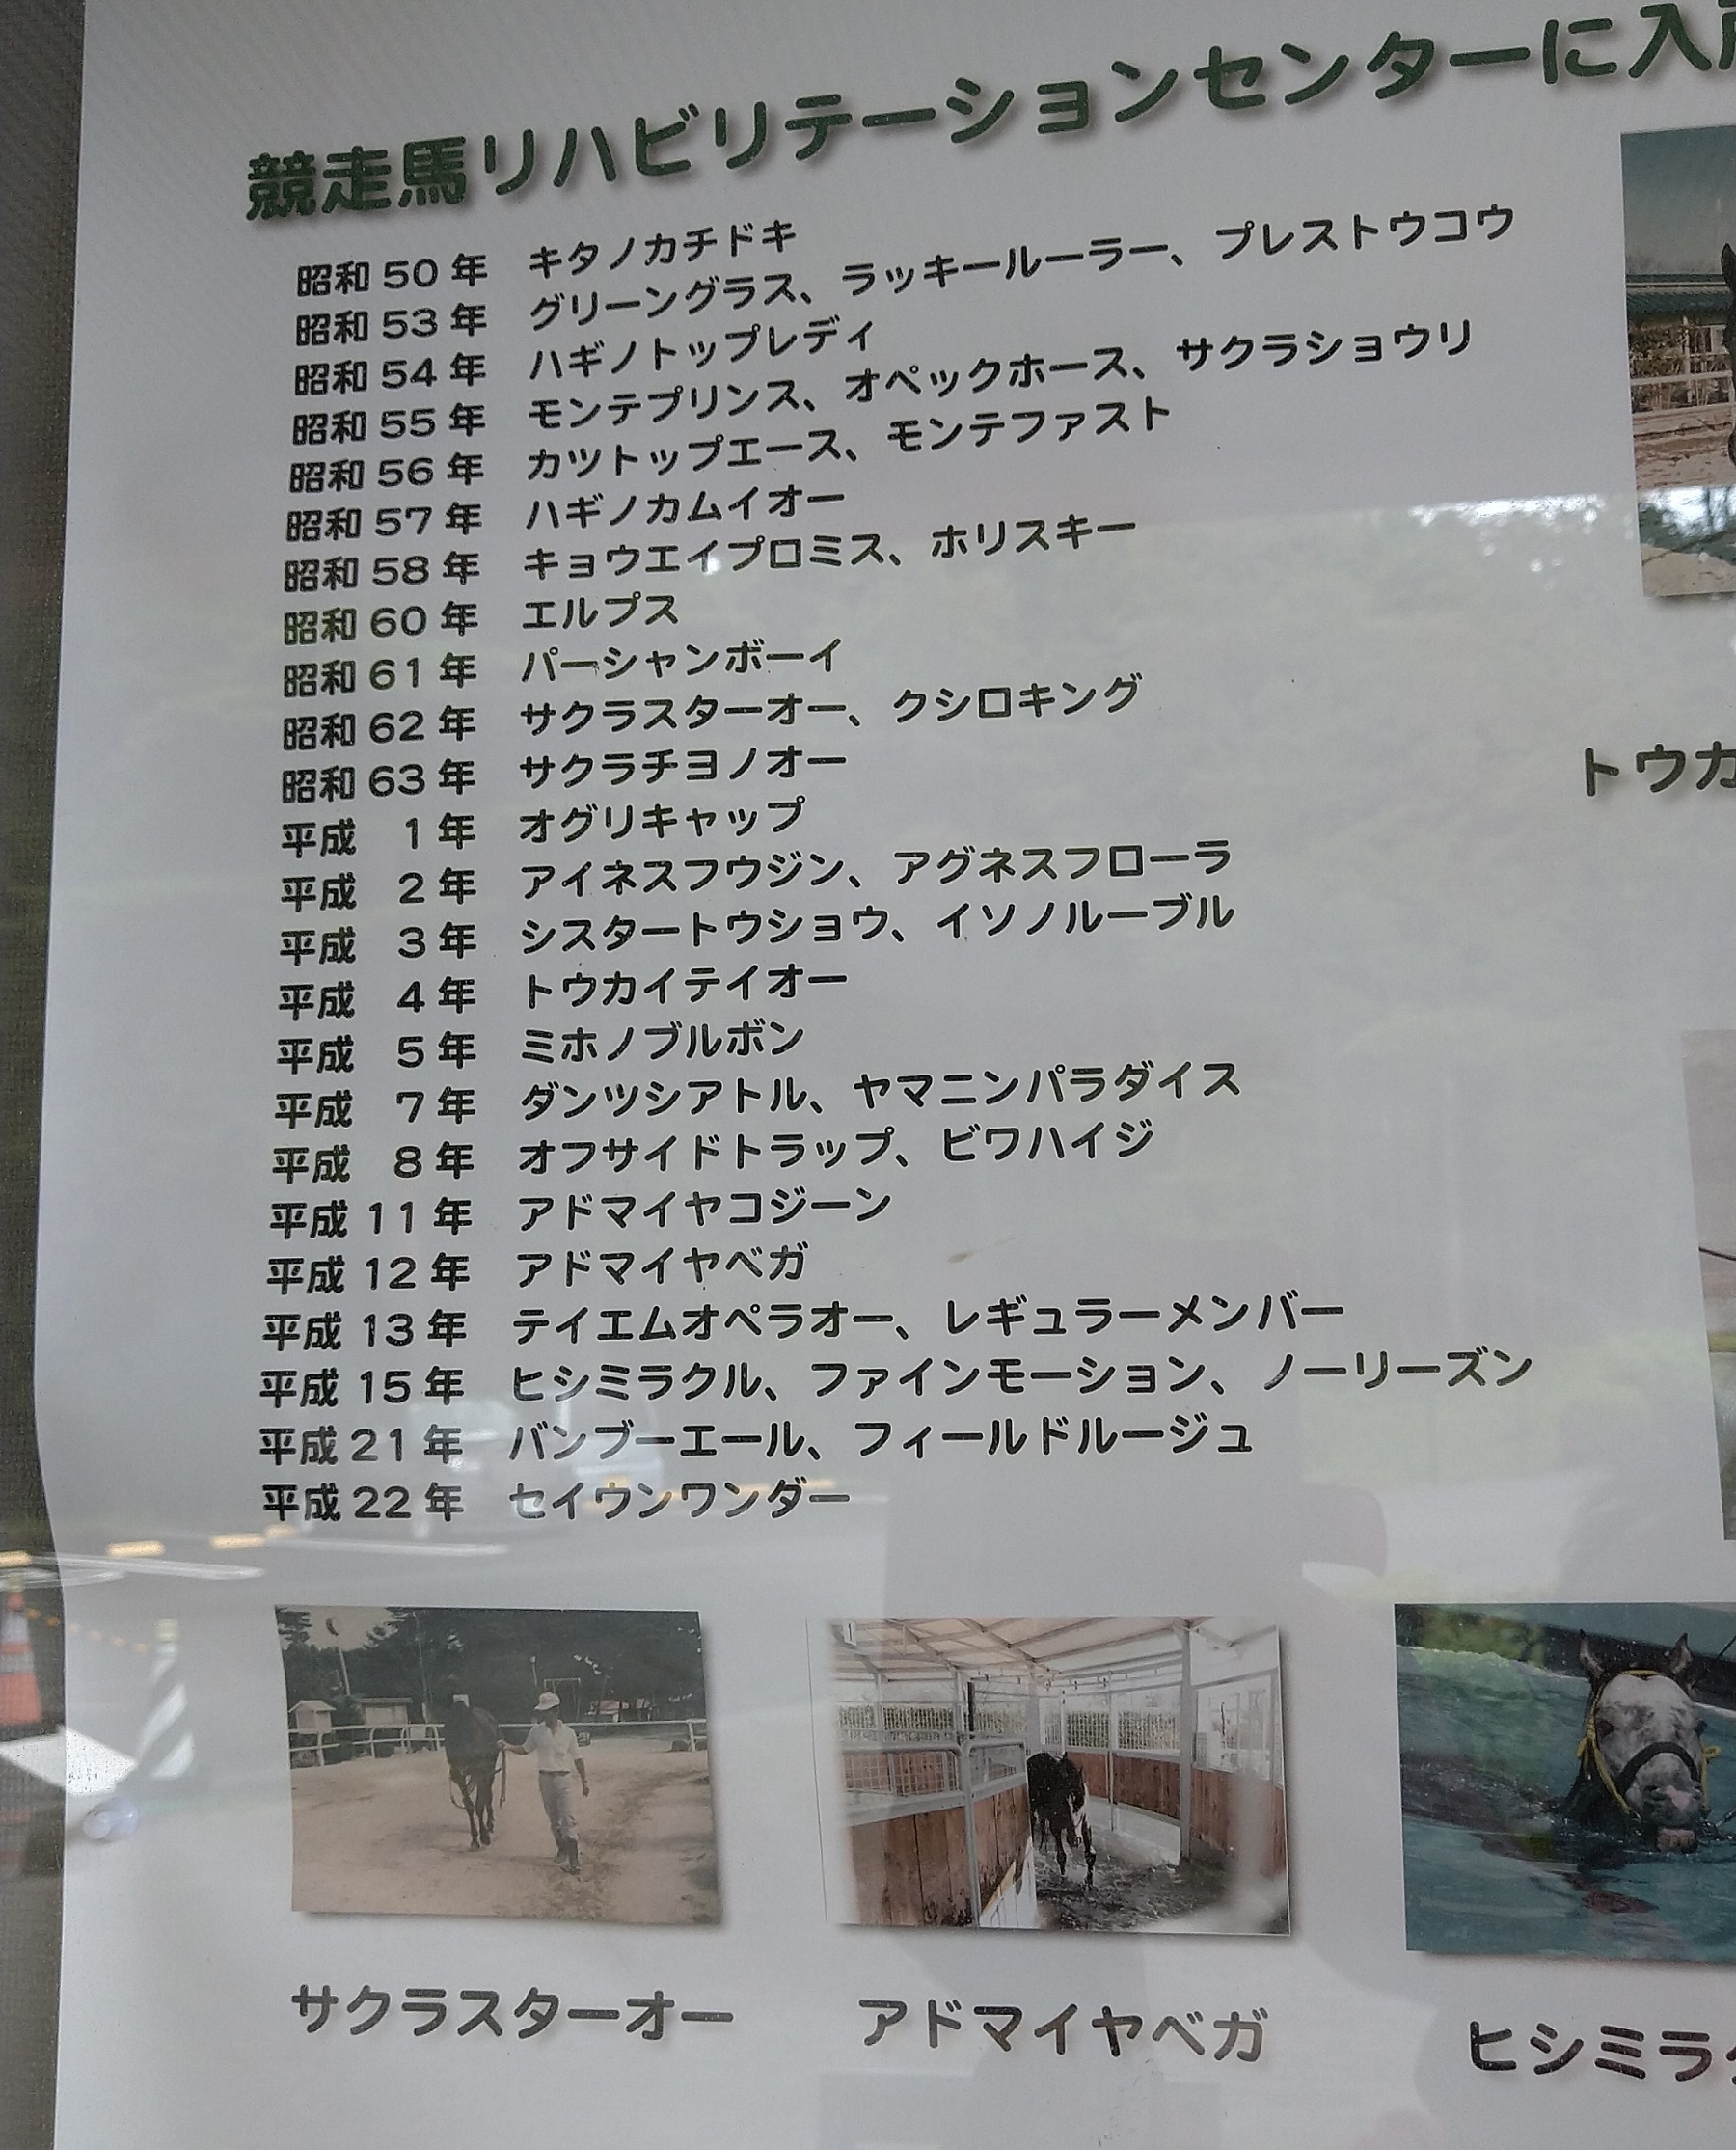 競走馬リハビリテーションセンターに入
昭和 50 年 キタノカチドキ
昭和 53 年 グリーングラス、ラッキールーラー、プレストウコウ
昭和 54 年 ハギノトップレディ
昭和 55 年 モンテプリンス、オペックホース、サクラショウリ
昭和 56 年 カツトップエース、モンテファスト
昭和 57 年 ハギノカムイオー
昭和 58 年 キョウエイプロミス、ホリスキー
昭和 60 年 エルプス
昭和 61 年 パーシャンボーイ
昭和 62 年 サクラスターオー、クシロキング
昭和 63 年 サクラチヨノオー
平成 1 年 オグリキャップ
平成 2 年 アイネスフウジン、アグネスフローラ
平成 3 年 シスタートウショウ、イソノルーブル
平成 4 年 トウカイテイオー
平成 5 年 ミホノブルボン
平成 7 年 ダンツシアトル、ヤマニンパラダイス
平成 8 年 オフサイドトラップ、ビワハイジ
平成 11 年 アドマイヤコジーン
平成 12 年 アドマイヤベガ
平成 13 年 テイエムオペラオー、レギュラーメンバー
平成 15 年 ヒシミラクル、ファインモーション、ノーリーズン
平成 21 年 バンブーエール、フィールドルージュ
平成 22 年 セイウンワンダー
トウカ
サクラスターオー
アドマイヤベガ
ヒシミラ